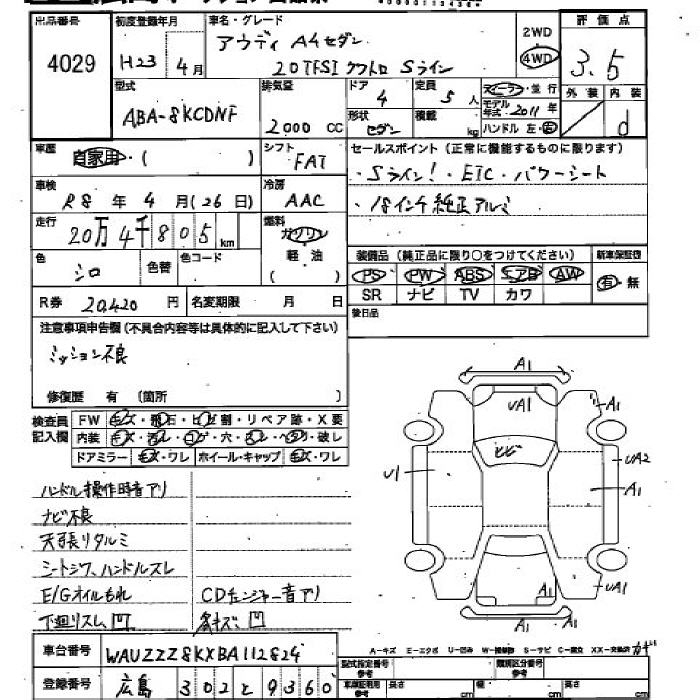 出品番号
4029
初度登録年月
H23 4月
車名・グレード
アウディ A4セダン
2.0TFSI クワトロ Sライン
2WD
4WD
評価点
3.5
型式
ABA-8KCDNF
排気量
2000 CC
ドア
4
定員
5人
形状
セダン
積載
kg
ディーラー・並行
モデル年式 2011年
ハンドル 左・右
外装
内装
d
車歴
自家用・( )
シフト
FAT
セールスポイント(正常に機能するものに限ります)
・Sライン!・ETC・パワーシート
・18インチ純正アルミ
車検
R8年4月(26日)
冷房
AAC
走行
20万4千805km
燃料
ガソリン
軽油
( )
色
シロ
色替
色コード
装備品(純正品に限り○をつけてください)
新車保証書
PS PW ABS エアB AW
有・無
SR ナビ TV カワ
R券 20,420円
名変期限 月 日
後日品
注意事項申告欄(不具合内容等は具体的に記入して下さい)
ミッション不良
修復歴 有(箇所 )
検査員記入欄
FW キズ・飛石・ヒビ割・リペア跡・X要
内装 キズ・汚レ・コゲ・穴・スレ・ヘタリ・破レ
ドアミラー キズ・ワレ ホイール・キャップ キズ・ワレ
ハンドル操作時音アリ
ナビ不良
天張リタルミ
シートシワ、ハンドルスレ
E/Gオイルもれ
CDチェンジャー音アリ
下廻リスレ凹
各キズ凹
A1
UA1
A1
ヒビ
U1
UA2
A1
A1
A1
UA1
A1
A1
A-キズ E-エクボ U-凹み W-補修跡 S-サビ C-腐食 XX-交換済
車台番号
WAUZZZ8KXBA112824
登録番号
広島 302 と 9360
型式指定番号
参考
類別区分番号
参考
車検証利用
参考
長さ cm
幅 cm
高さ cm